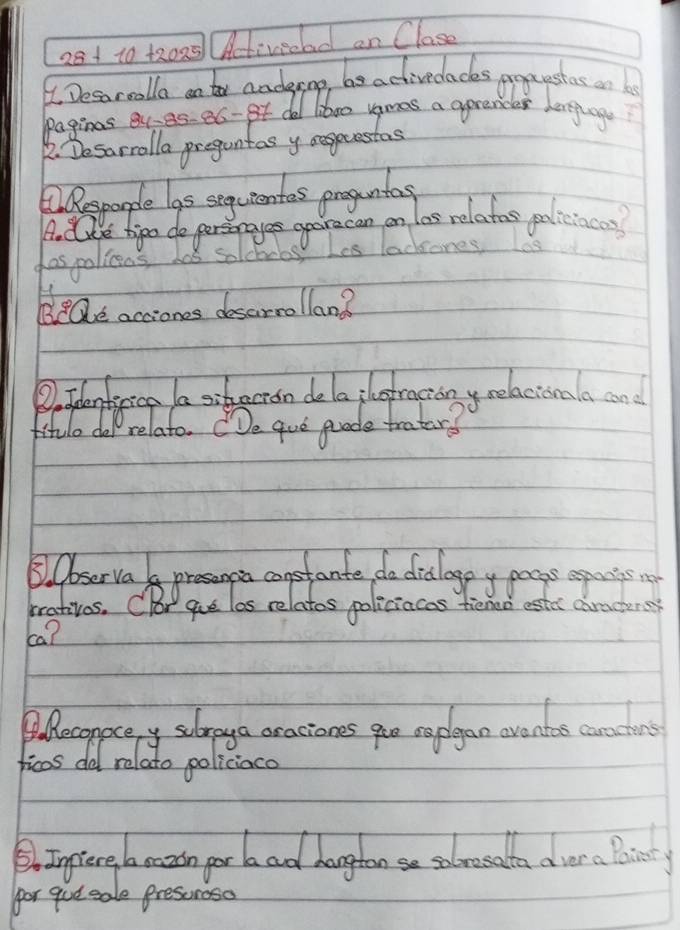 28 + 10 + 2025 Actividad en Clase
1. Desarrolla en tu cuaderno, las actividades propuestas en las
paginas 84-85-86-87 del libro vamos a aprender Lenguaje 7
2. Desarrolla preguntas y respuestas
1. Responde las siguientes preguntas
A. ¿Qué tipo de personajes aparecen en los relatos policiacos?
Los policias, Los soldados, Los ladrones, Los
B. ¿Qué acciones desarrollan?
2. Identifica la situación de la ilustración y relaciónala con el
titulo del relato. ¿De qué puede tratar?
3. Observa la presencia constante de dialogo y pocos espacios na-
rrativos. ¿Por qué los relatos policiacos tienen esta caracteristi
ca?
4. Reconoce y subraya oraciones que reflejan eventos caracteris
ticos del relato policiaco
5. Infiere, la razón por la cual hangton se sobresalta al ver a Poirot y
por qué sale presuroso